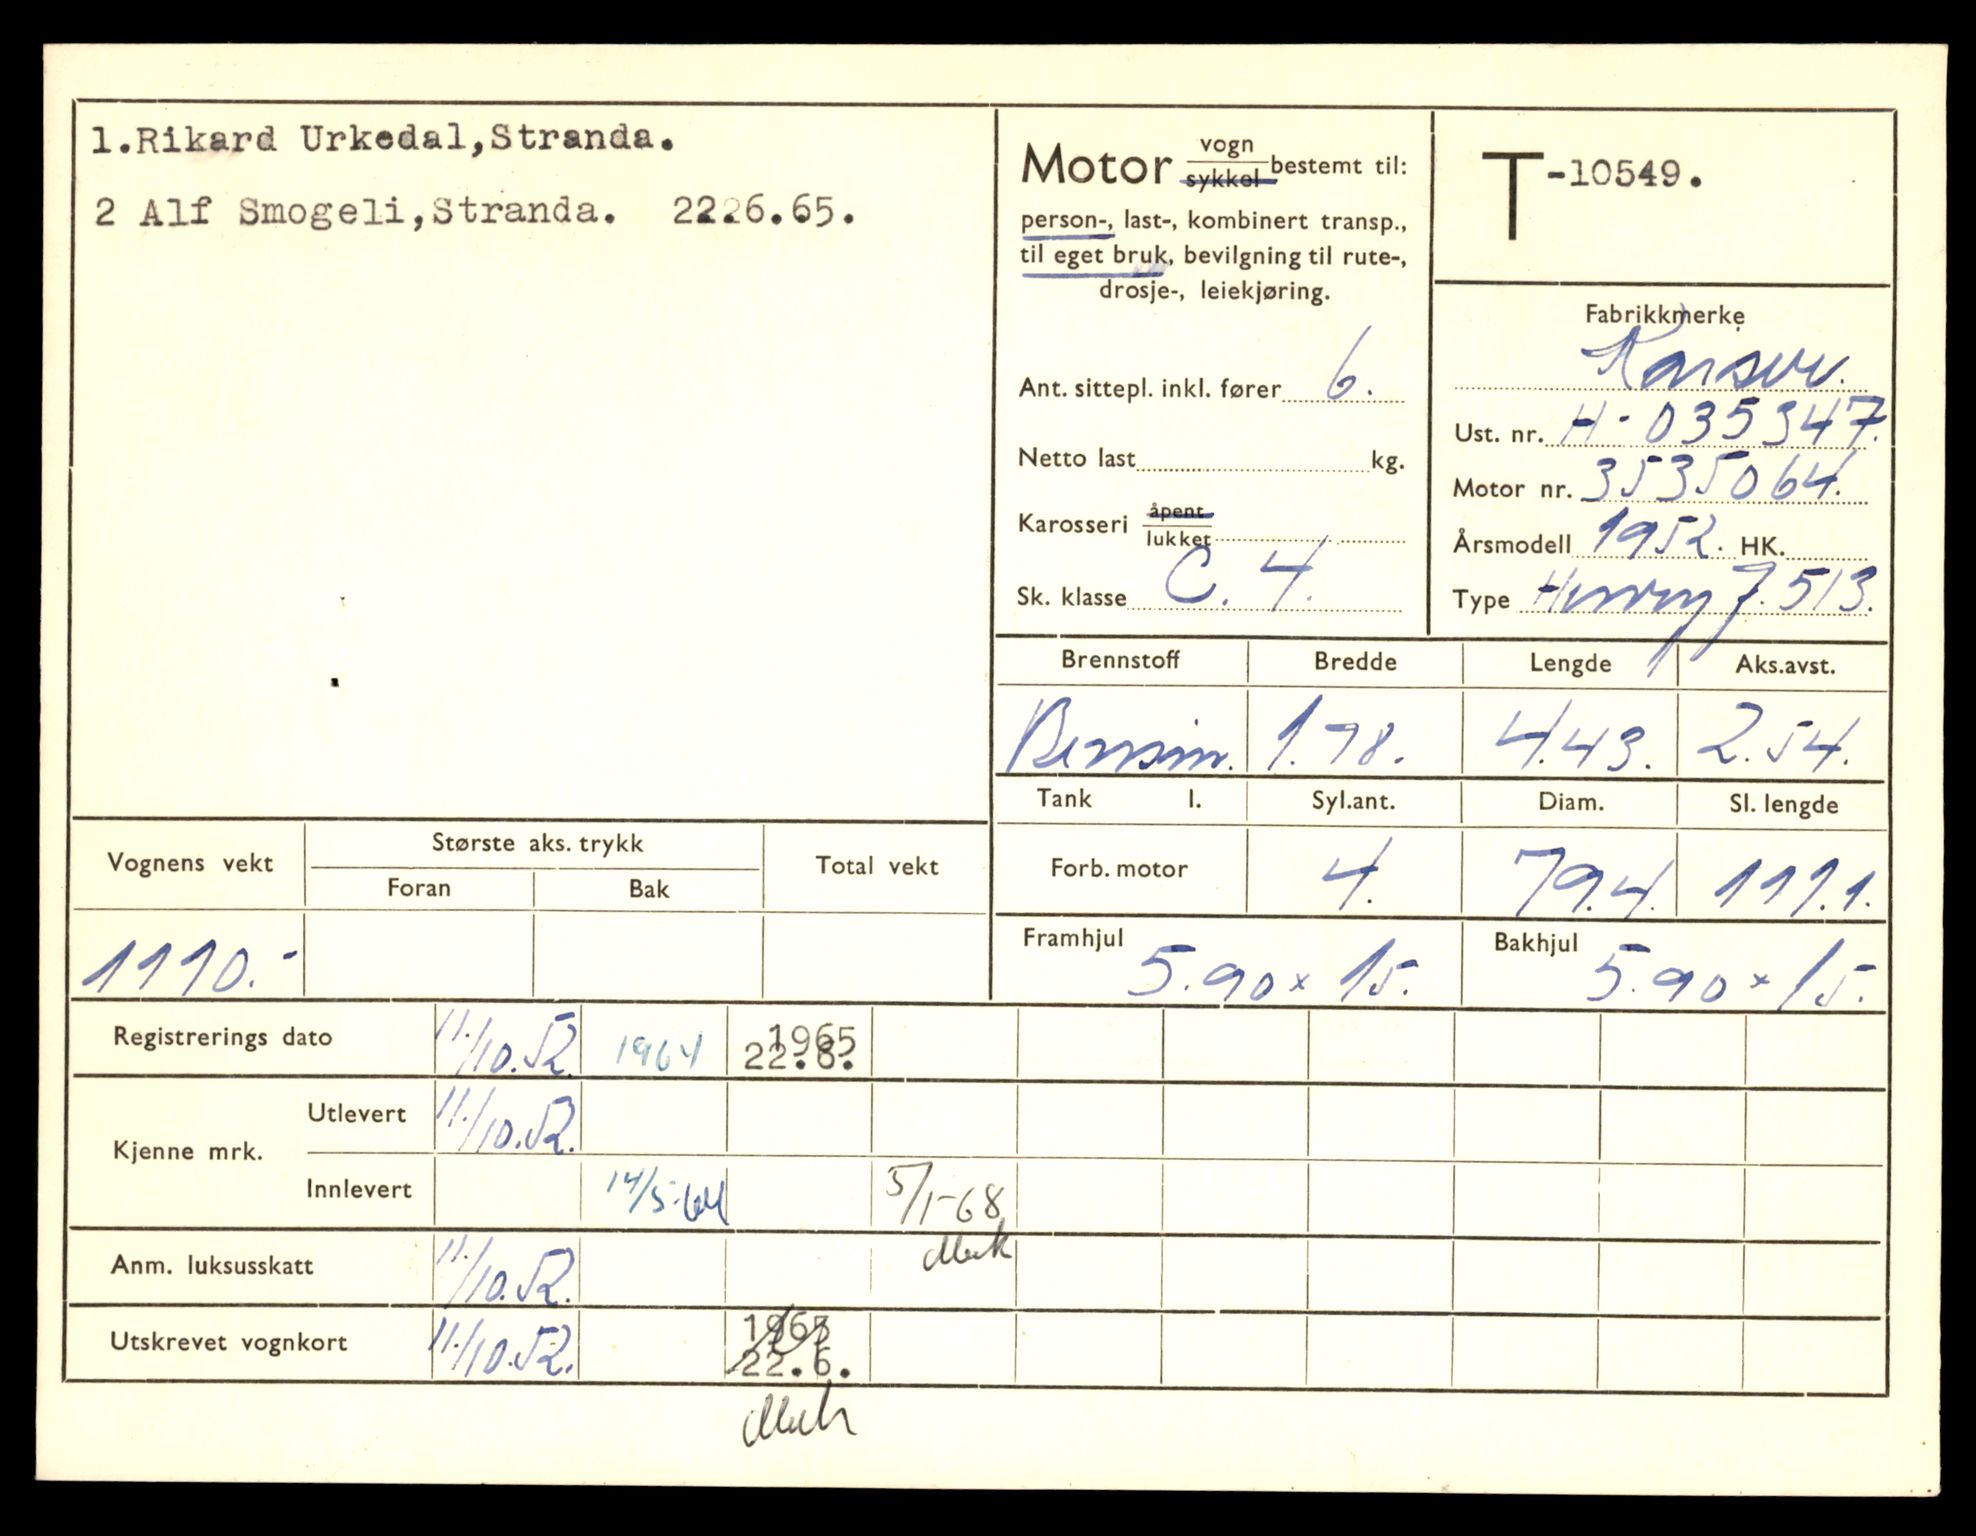 1.Rikard Urkedal,Stranda.
2 Alf Smogeli,Stranda. 2226.65.
Motor vogn sykkel bestemt til:
person-, last-, kombinert transp.,
til eget bruk, bevilgning til rute-,
drosje-, leiekjøring.
Ant. sittepl. inkl. fører 6.
Netto last kg.
Karosseri åpent lukket
Sk. klasse C. 4.
T-10549.
Fabrikkmerke
Kaiser.
Ust. nr. H-035347.
Motor nr. 3535064.
Årsmodell 1952. HK.
Type Henry J. 513.
Brennstoff Bredde Lengde Aks.avst.
Bensin. 1.78. 4.43. 2.54.
Tank l. Syl.ant. Diam. Sl. lengde
Forb. motor 4. 79.4. 111.1.
Framhjul 5.90 x 15. Bakhjul 5.90 x 15.
Vognens vekt Største aks. trykk Total vekt
Foran Bak
1110.-
Registrerings dato 11./10.52. 1964 1965
22.6.
Kjenne mrk.
Utlevert 11./10.52.
Innlevert 14/5-64 5/1-68
Anm. luksusskatt 11./10.52.
Utskrevet vognkort 11./10.52. 1965
22.6.